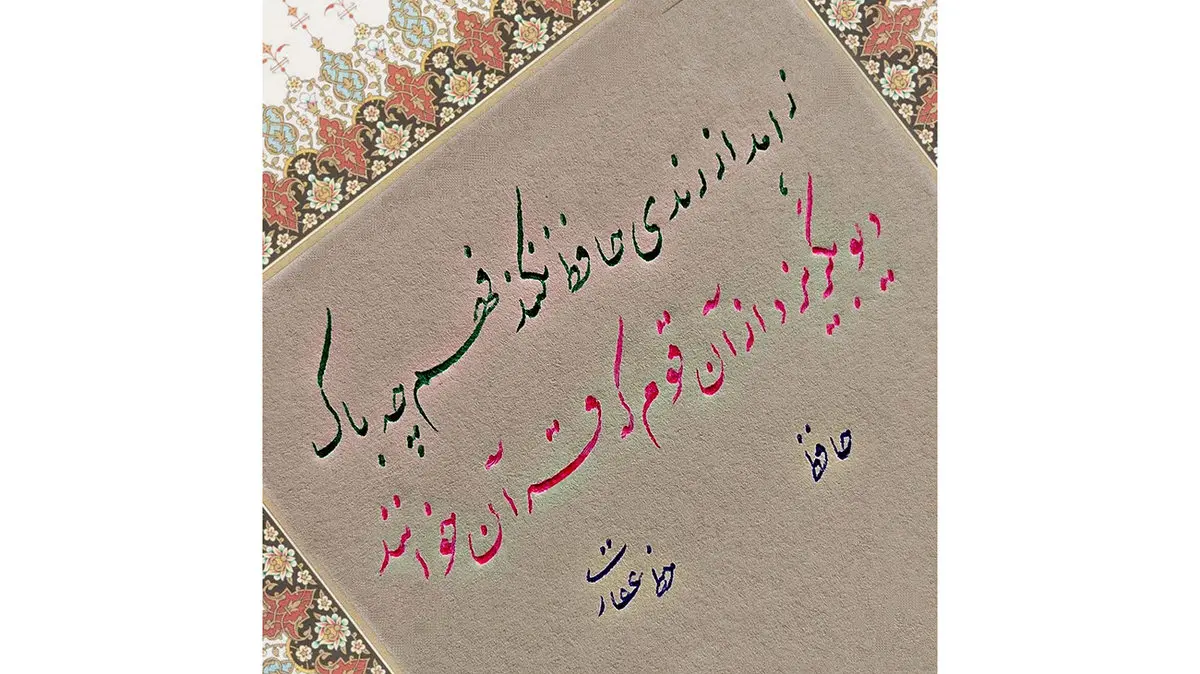 زاهد از رندی حافظ نکند فهم چه باک
دیو بگریزد از آن قوم که قرآن خوانند
حافظ
خط